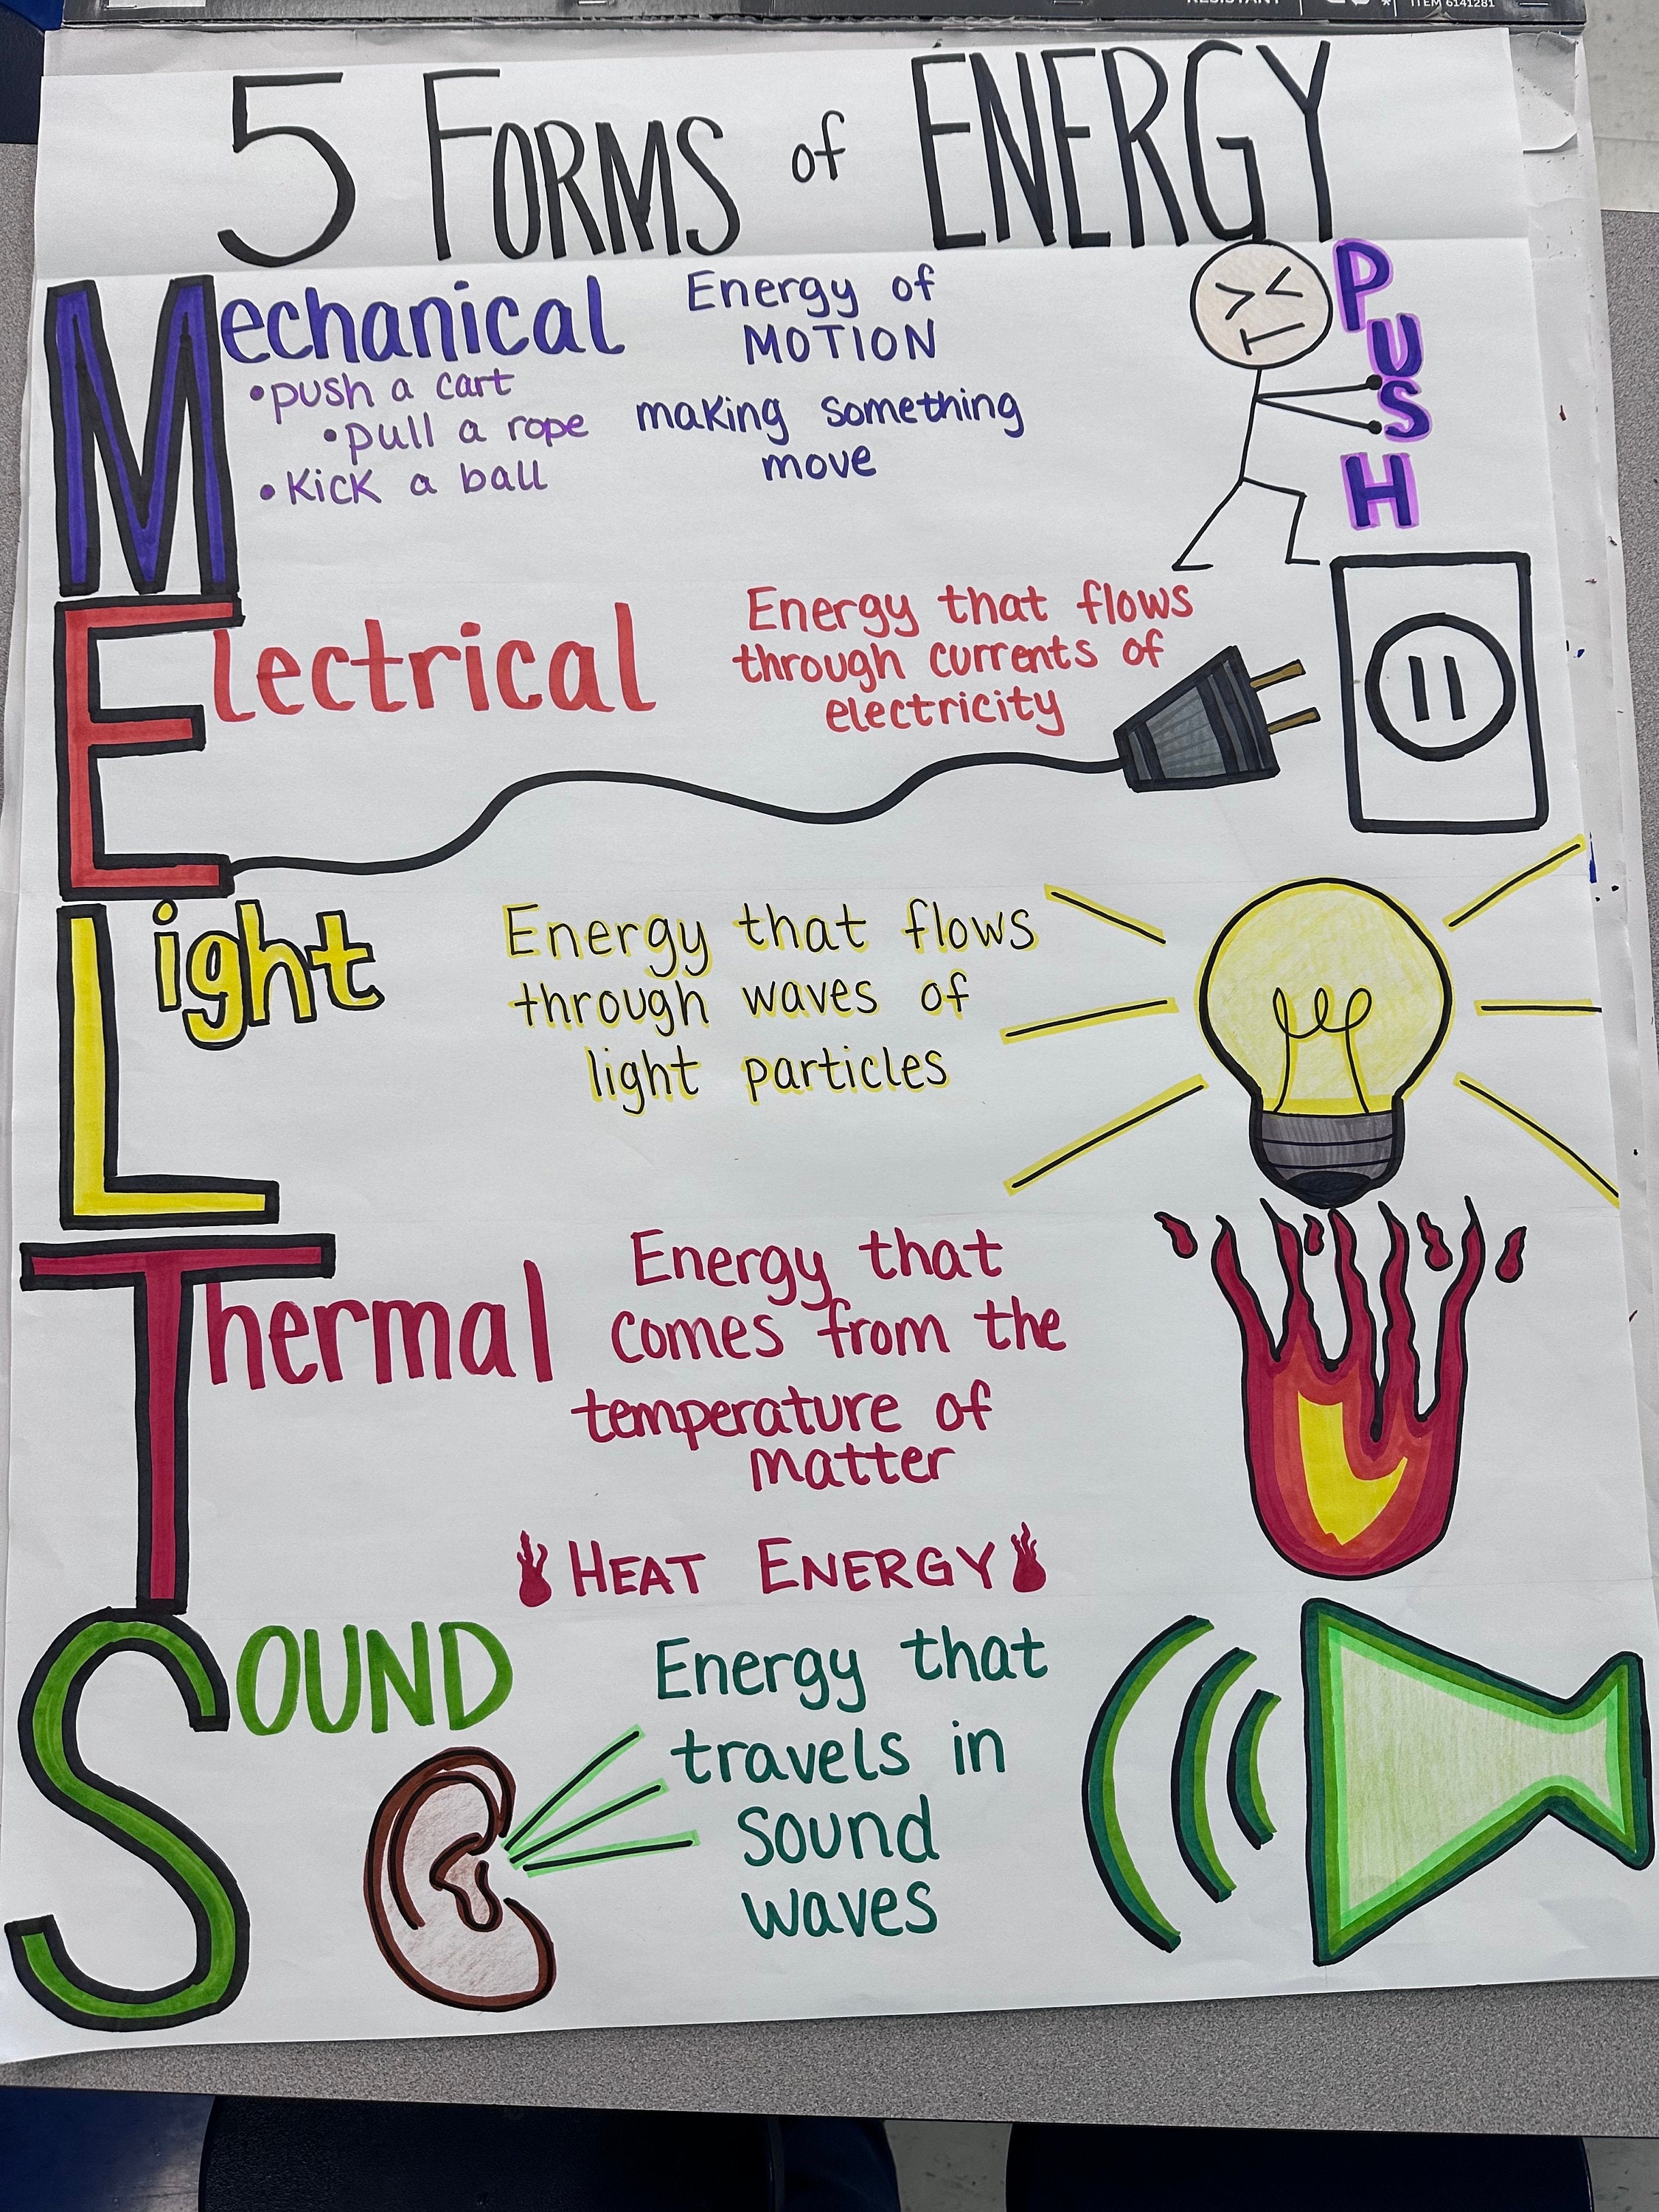 RESISTANT
ITEM 6141281
5 FORMS of ENERGY
Mechanical
• push a cart
• pull a rope
• Kick a ball
Energy of
MOTION
making something
move
PUSH
Electrical
Energy that flows
through currents of
electricity
Light
Energy that flows
through waves of
light particles
Thermal
Energy that
comes from the
temperature of
matter
HEAT ENERGY
SOUND
Energy that
travels in
sound
waves